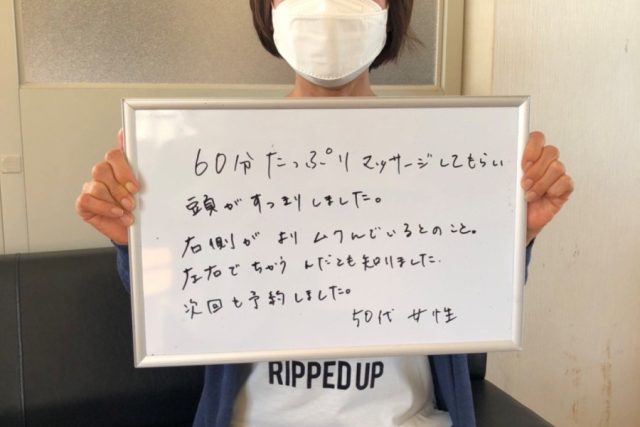 60分たっぷりマッサージしてもらい
頭がすっきりしました。
右側がよりムクんでいるとのこと。
左右でちがうんだとも知りました.
次回も予約しました。
50代 女性
RIPPED UP